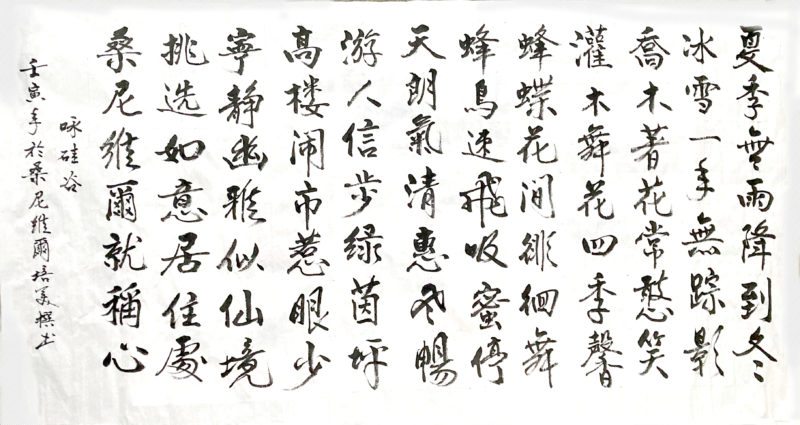 夏季無雨降到冬
冰雪一年無踪影
喬木著花常憨笑
灌木舞花四季馨
蜂蝶花间徘徊舞
蜂鳥速飛吸蜜停
天朗氣清惠風暢
游人信步绿茵坪
高楼闹市惹眼少
寧静幽雅似仙境
挑选如意居住處
桑尼維爾就稱心
咏硅谷
壬寅年於桑尼維爾培美撰书